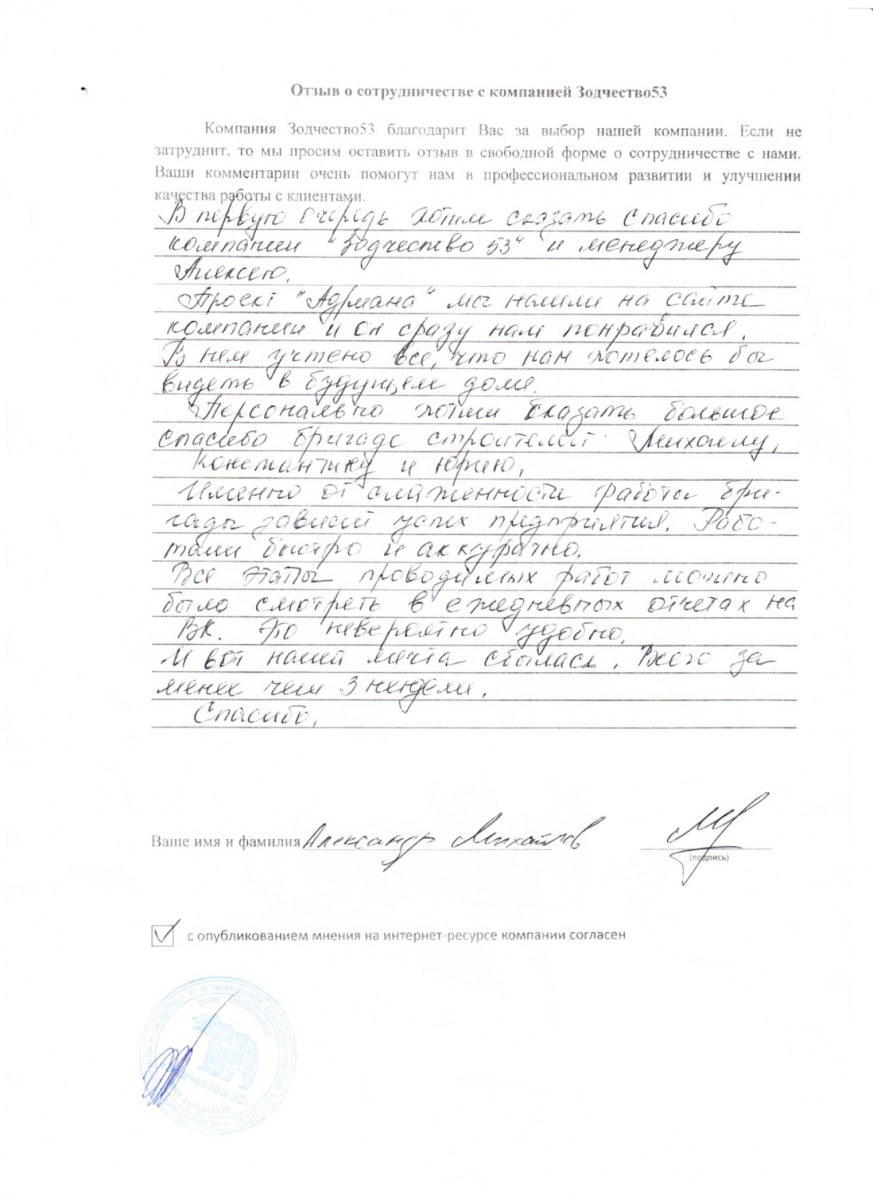 Отзыв о сотрудничестве с компанией Зодчество53
Компания Зодчество53 благодарит Вас за выбор нашей компании. Если не
затруднит, то мы просим оставить отзыв в свободной форме о сотрудничестве с нами.
Ваши комментарии очень помогут нам в профессиональном развитии и улучшении
качества работы с клиентами.
В первую очередь хотим сказать спасибо
компании "Зодчество 53" и менеджеру
Алексею.
Проект "Адриана" мы нашли на сайте
компании и он сразу нам понравился.
В нем учтено все, что нам хотелось бы
видеть в будущем доме.
Персонально хотим сказать большое
спасибо бригаде строителей: Михаилу,
Константину и Юрию.
Именно от слаженности работы бри-
гады зависит успех предприятия. Рабо-
тали быстро и аккуратно.
Все этапы проводимых работ можно
было смотреть в ежедневных отчетах на
ВК. Это невероятно удобно.
И вот наша мечта сбылась. Всего за
менее чем 3 недели.
Спасибо.
Ваше имя и фамилия Александр Михайлов
(подпись)
с опубликованием мнения на интернет-ресурсе компании согласен